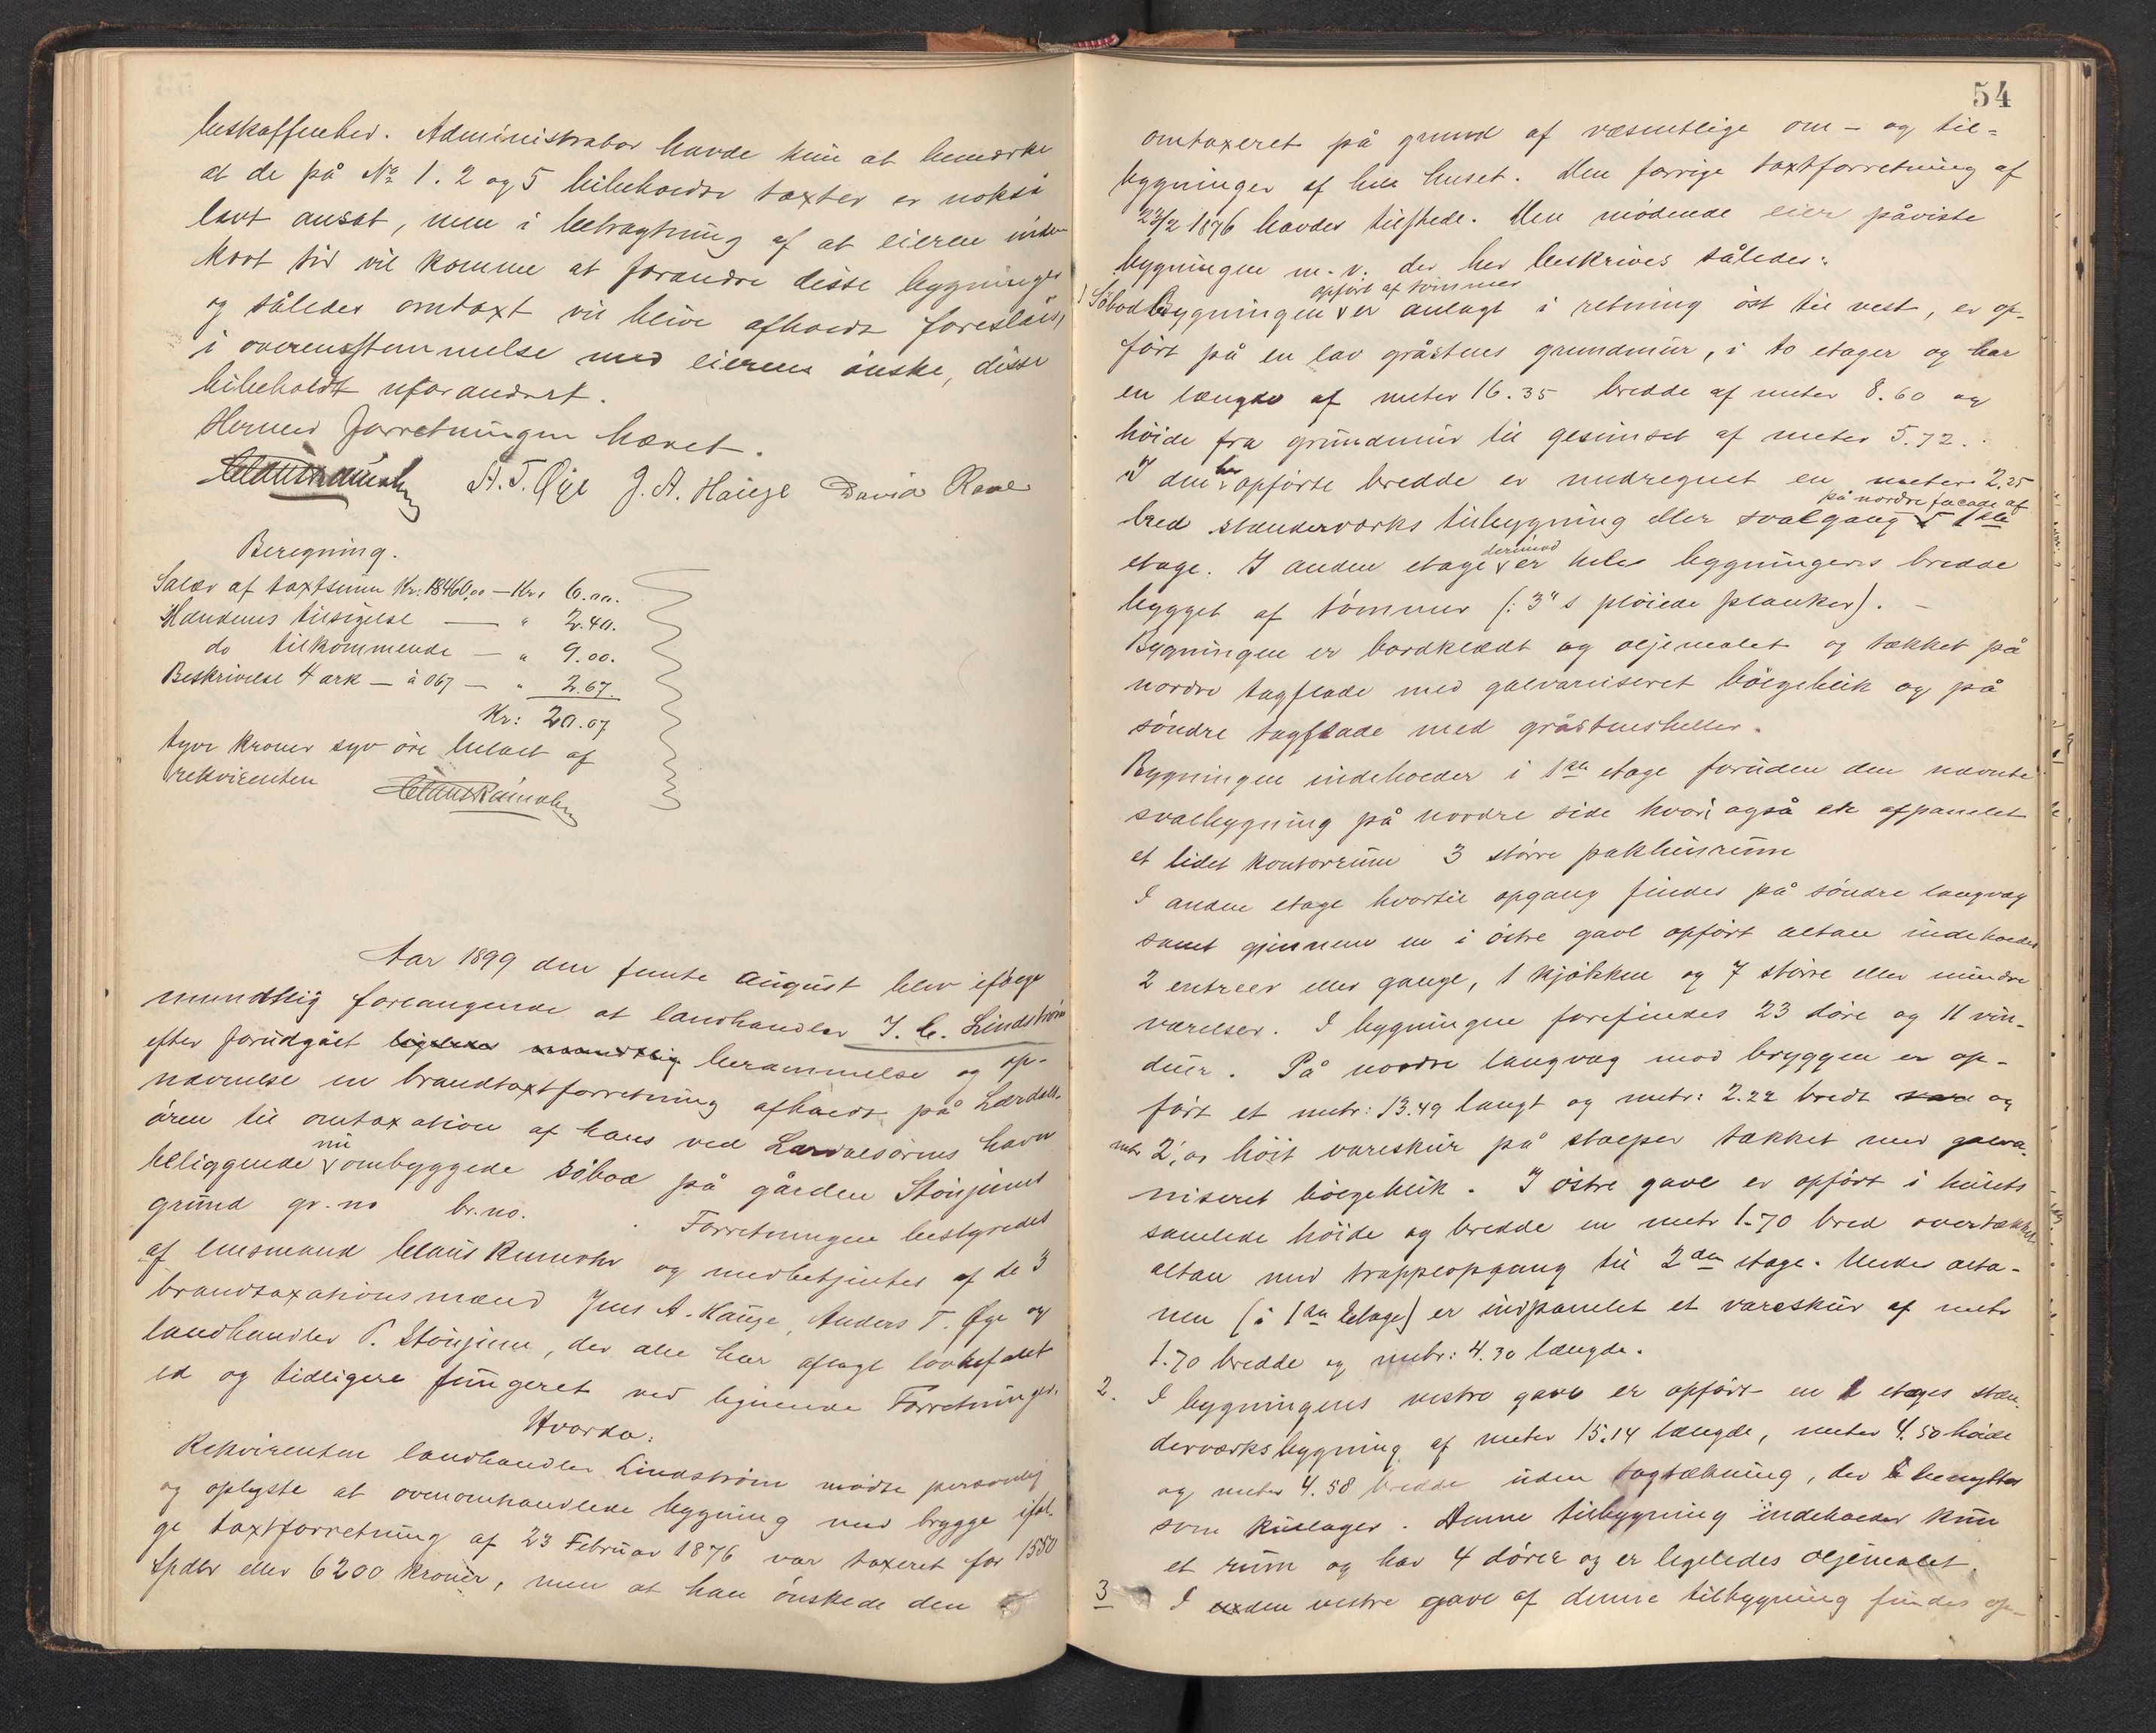 beskaffenhed. Administrator havde kun at bemærke
at de på No 1. 2 og 5 bibeholdte taxter er nokså
lavt ansat, men i betragtning af at eieren inden
kort tid vil komme at forandre disse bygninger
og således omtaxt vil blive afholdt foreslåes,
i overensstemmelse med eierens ønske, disse
bibeholdt uforandret.
Hermed Forretningen hævet.
Claus Rumohr A. T. Øye J. A. Hauge David
Beregning.
Salær af taxtsum Kr: 18460,00 — Kr: 6.00.
Mændenes tilsigelse — " 2.40.
do tilkommende — " 9.00.
Beskrivelse 4 ark — à 067 — " 2.67.
Kr: 20.07
tyve kroner syv øre betalt af
rekvirenten Claus Rumohr
Aar 1899 den femte august blev ifølge
mundtlig forlangende at landhandler J. C. Lindstrøm
efter forudgået berammelse og op-
nævnelse en brandtaxtforretning afholdt på Lærdals-
øren til omtaxation af hans ved Lærdalsørens havn
beliggende nu ombyggede søbod på gården Støinjums
grund gr. no br. no. . Forretningen bestyredes
af lensmand Claus Rumohr og medbetjentes af de 3
brandtaxationsmænd Jens A. Hauge, Anders T. Øye og
landhandler P. Støinjum, der alle har aflagt lovbefalet
ed og tidligere fungeret ved lignende Forretninger.
Hvorda:
Rekvirenten landhandler Lindstrøm mødte personlig
og oplyste at ovenomhandlede bygning med brygge iføl-
ge taxtforretning af 23 Februar 1876 var taxeret for 1550
Spdlr eller 6200 kroner, men at han ønskede den
54
omtaxeret på grund af væsentlige om- og til-
bygninger af hele huset. Den forrige taxtforretning af
23/2 1876 havdes tilstede. Den mødende eier påviste
bygningen m. v. der her beskrives således:
opført af tømmer
1 Søbodbygningen er anlagt i retning øst til vest, er op-
ført på en lav gråstens grundmur, i to etager og har
en længde af meter 16.35 bredde af meter 8.60 og
høide fra grundmur til gesimset af meter 5.72.
I den her opførte bredde er medregnet en meter 2.25
på nordre facade af
bred stenderværks tilbygning eller svalgang 1ste
etage. I anden etage derimod er hele bygningens bredde
bygget af tømmer (: 3" s pløiede planker). —
Bygningen er bordklædt og oljemalet og tækket på
nordre tagflade med galvaniseret bølgeblik og på
søndre tagflade med gråstensheller.
Bygningen indeholder i 1ste etage foruden den nævnte
svalbygning på nordre side hvori også er afpanelet
et lidet kontorrum 3 større pakhusrum
I anden etage hvortil opgang findes på søndre langvæg
samt gjennem en i østre gavl opført altan indeholder
2 entreer eller gange, 1 kjøkken og 7 større eller mindre
værelser. I bygningen forefindes 23 døre og 11 vin-
duer. På nordre langvæg mod bryggen er op-
ført et metr: 13.49 langt og metr: 2.22 bredt og
metr 2,01 høit vareskur på stolper tækket med galva-
niseret bølgeblik. I østre gavl er opført i husets
samlede høide og bredde en metr 1.70 bred overtækket
altan med trappeopgang til 2den etage. Under alta-
nen (i 1ste Etage) er indpanelet et vareskur af metr
1.70 bredde og metr: 4.30 længde.
2. I bygningens vestre gavl er opført en 1 etages sten-
derværksbygning af meter 15.14 længde, meter 4.50 høide
og meter 4.58 bredde uden tagtækning, der benyttes
som kullager. Denne tilbygning indeholder kun
et rum og har 4 dører og er ligeledes oljemalet.
3 I den vestre gavl af denne tilbygning findes op-